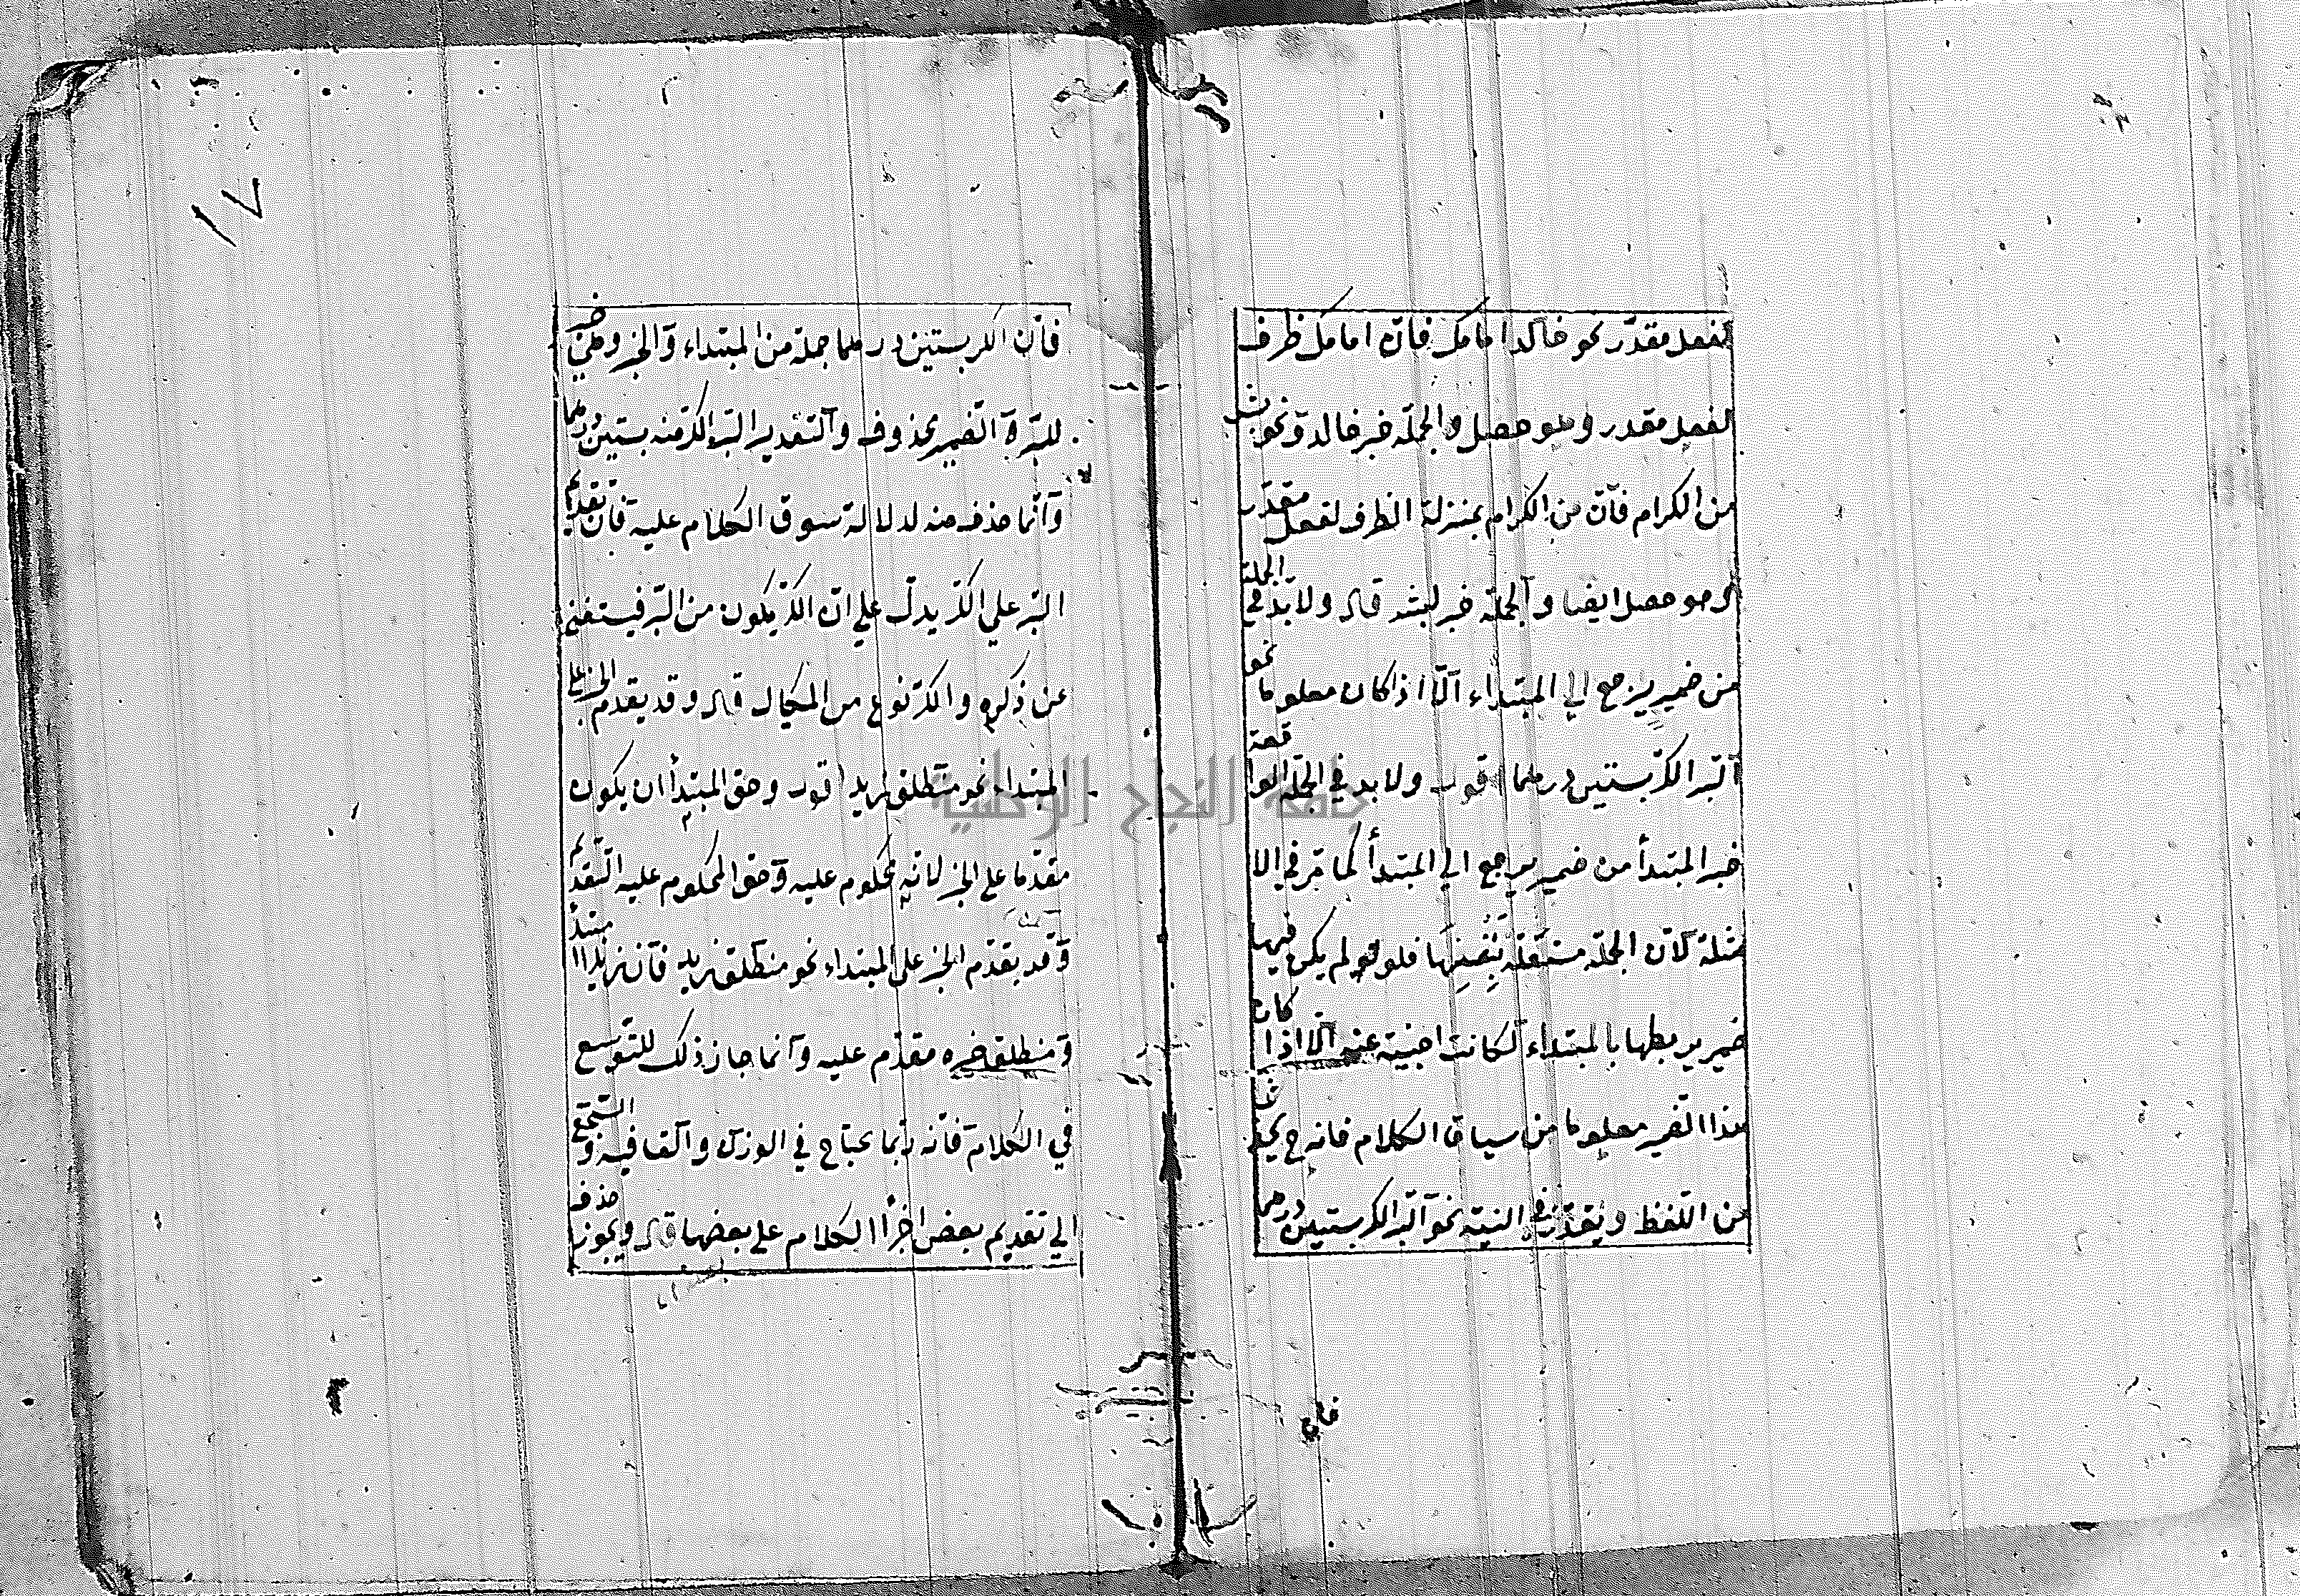 لفعل مقدّر نحو خالد امامك فانّ امامك ظرف
لفعل مقدر وهو حصل والجملة خبر خالد ونحو بشر
من الكرام فانّ من الكرام بمنزلة الظرف لفعل مقدّر
وهو حصل ايضا والجملة خبر لبشر قال ولا بدّ في الجملة
من ضمير يرجع الي المبتداء الّا اذا كان معلوما نحو
البّر الكرّ بستين درهما اقول ولا بد في الجملة الواقعة
خبر المبتدأ من ضمير يرجع الي المبتدأ كما مّر في الا
مثلة لانّ الجملة مستقلّة بنفسها فلو لم يكن فيها
ضمير يربطها بالمبتداء لكانت اجنبيّة عنه الّا اذا كان
هذا الضمير معلوما من سياق الكلام فانه ح يحذف
من اللّفظ ويقدّر في النيّة نحو البّر الكر بستين درهما
فان
١٧
فانّ الكر بستين درهما جملة من المبتداء والخبر وهي خبر
للبّر والضمير محذوف والتقدير البّر الكرّ منه بستين درهما
وانّما حذف منه لدلالة سوق الكلام عليه فانّ تقديم
البّر علي الكرّ يدلّ علي انّ الكرّ يكون من البّر فيستغني
عن ذكره والكرّ نوع من المكيال قال وقد يقدم الخبر علي
المبتداء نحو منطلق زيد اقول وحق المبتدأ ان يكون
مقدّما علي الخبر لانّه محكوم عليه وحق المحكوم عليه التّقديم
وقد يقدّم الخبر علي المبتداء نحو منطلق زيد فانّ زيدا مبتدأ
ومنطلق خبره مقدّم عليه وانما جاز ذلك للتوّسع
في الكلام فانّه ربّما يحتاج في الوزن والقافية والسّجع
الي تقديم بعض اجزأ الكلام علي بعضها قال ويجوز حذف
جامعة النجاح الوطنية